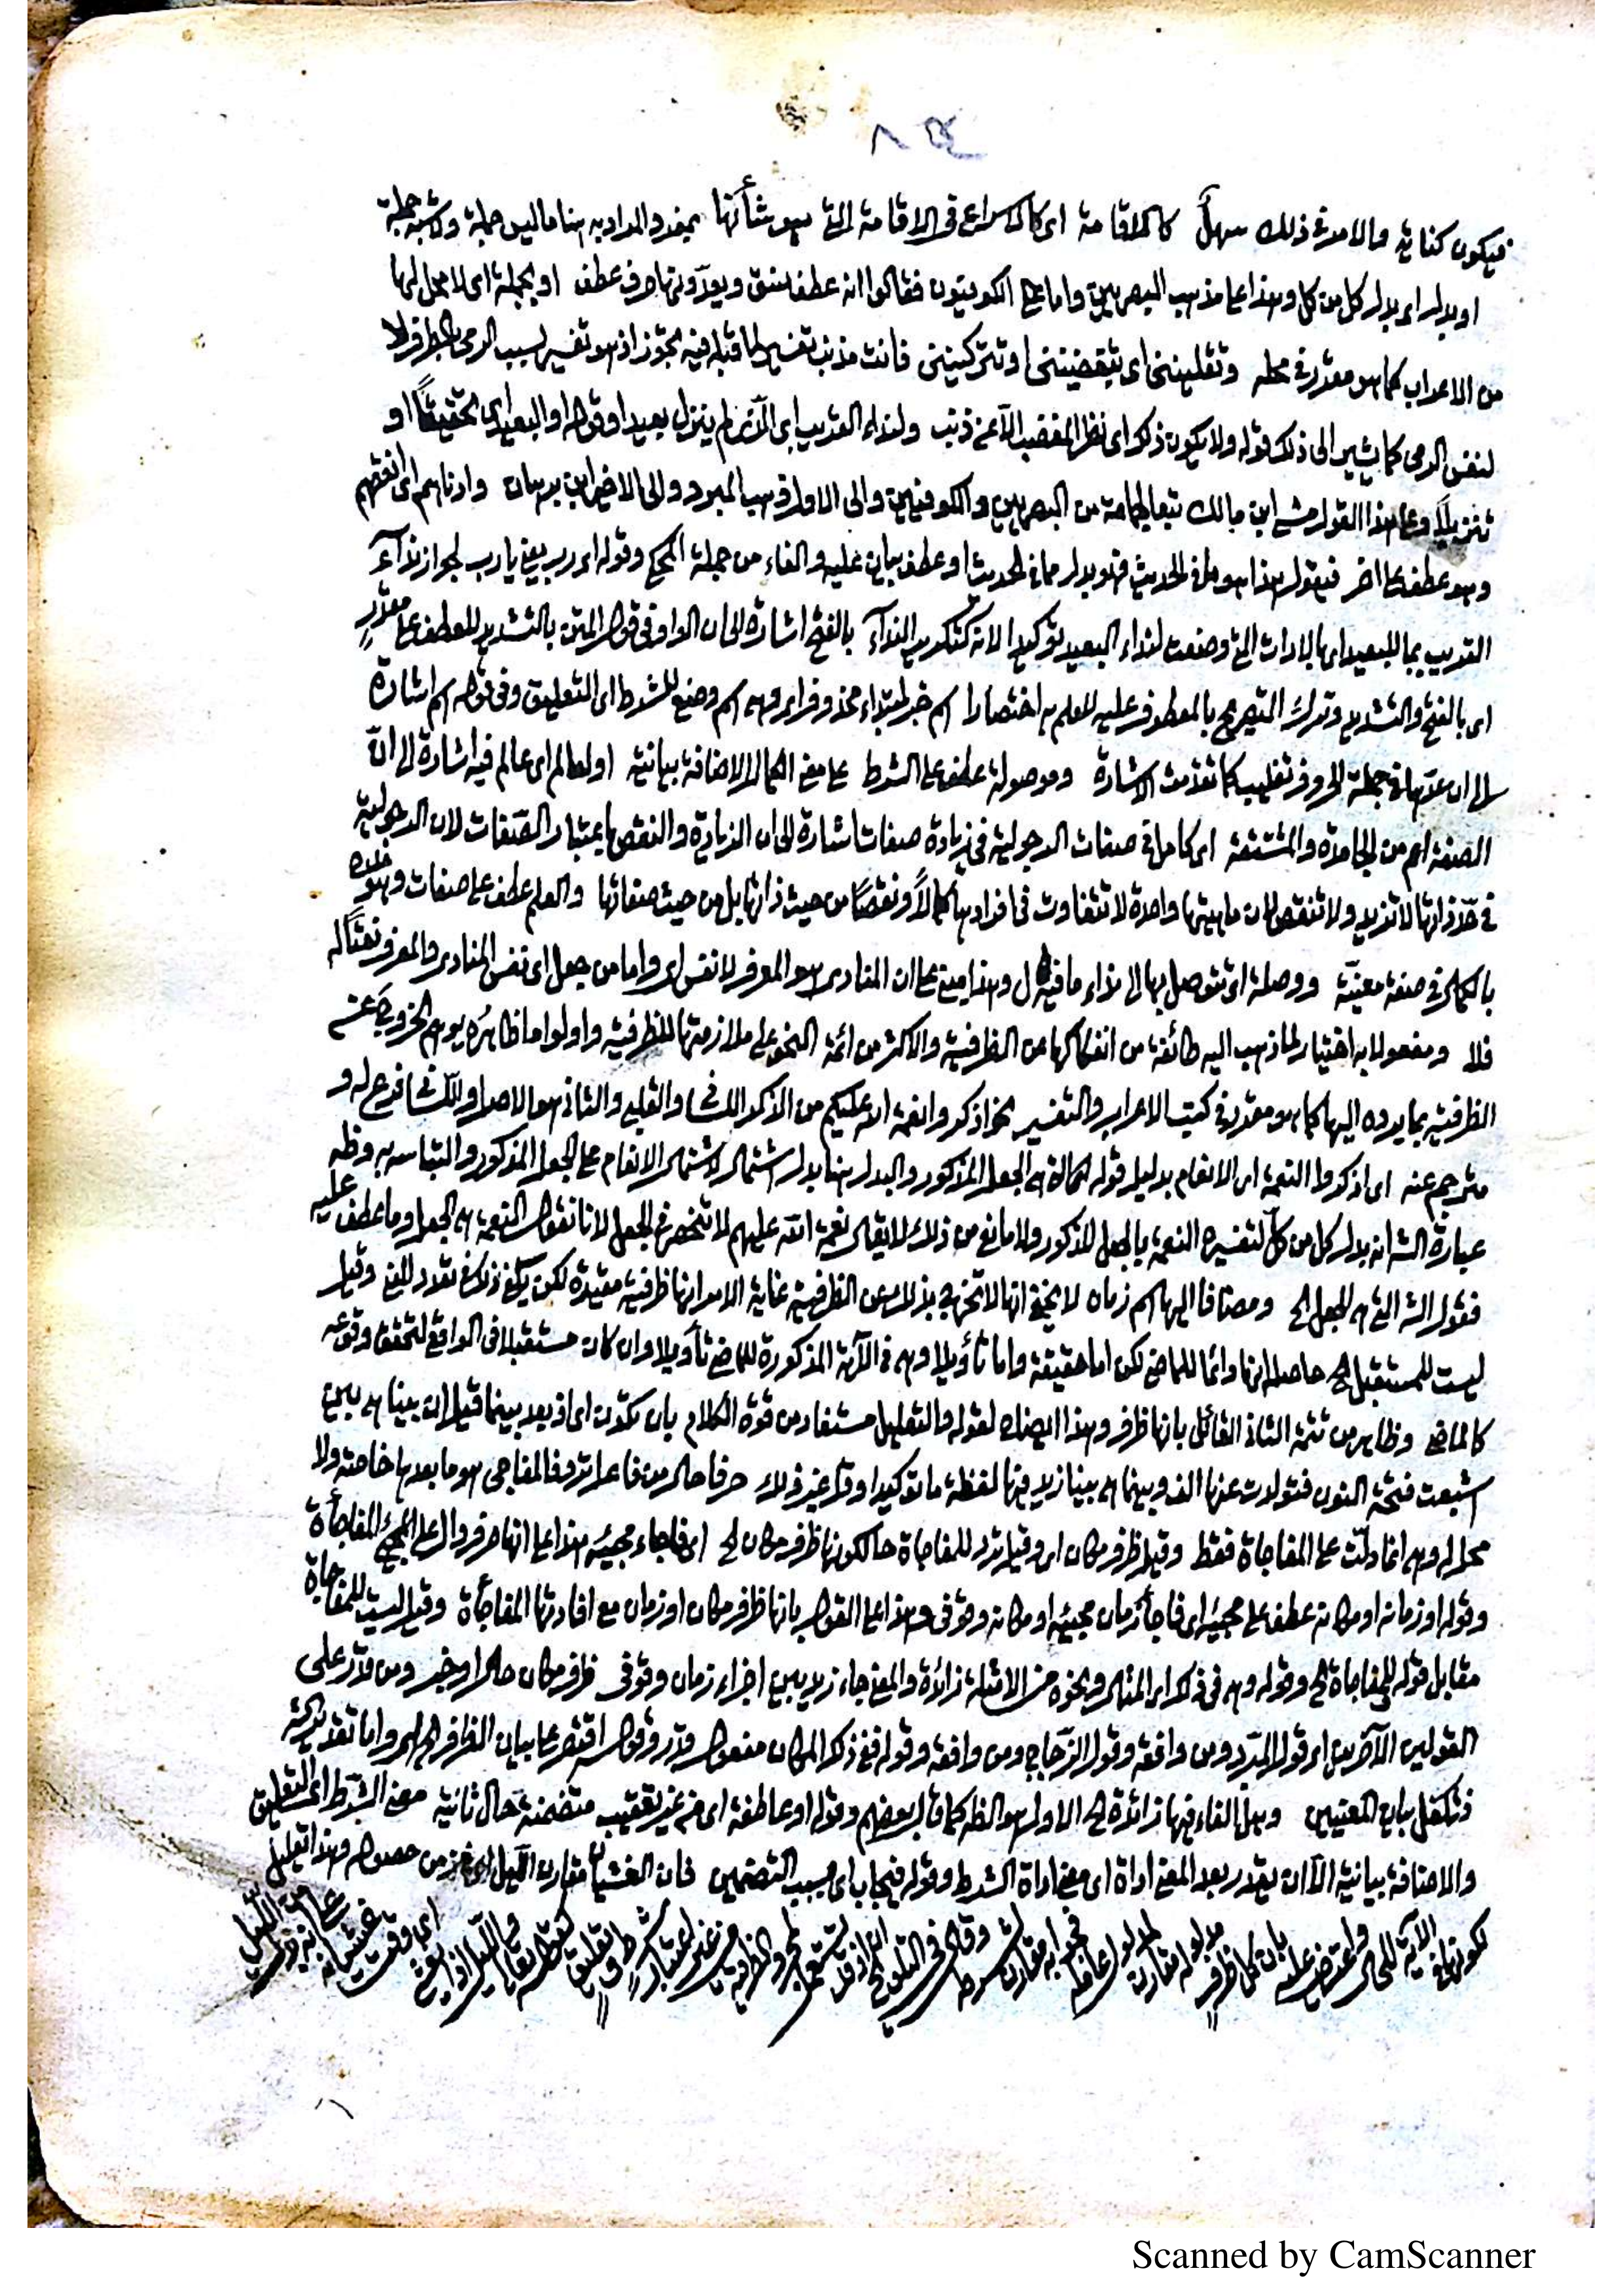 فيكون كناية والامر في ذلك سهل كالاقامة اى كالاسراع في الاقامة التي هو شأنها بمفرد المراد به هنا ما ليس جملة ولا شبه جملة
او بدل اى بدل كل من كل وهذا على مذهب البصريين واما الكوفيون فقالوا انه عطف نسق ويعدونها حرف عطف او بجملة اى لا محل لها
من الاعراب كما هو مقرر في محله وتقلينني اى تبغضينني او تتركينني فانت مذنب تفسير لما قبله فيه تجوز اذ هو تفسير لسبب الرمي بالطرف لا
لنفس الرمى كما يشير الى ذلك قوله ولا يكون ذلك اى نظر المغضب الا عن ذنب ولنداء القريب اى الذى لم ينزل بعيدا وقوله او البعيد اى تحقيقا او
تنزيلا وعلى هذا القول مشى ابن مالك تبعا لجماعة من البصريين والكوفيين والى الاول ذهب المبرد والى الاخير ابن برهان وادناهم اى انقصهم
وهو عطف على اخر فيقول هذا هو ما في الحديث فهو بدل مما في الحديث او عطف بيان عليه والفاء من جملة المحكي وقوله اى رب يعني يا رب لجواز نداء
القريب بما للبعيد اى بالادات التي وضعت لنداء البعيد توكيدا لانه كتكرير النداء بالفتح اشارة الى ان الواو في قول المتن بالتشديد للعطف على مقدر
اى بالفتح والتشديد وترك التصريح بالمعطوف عليه للعلم به اختصارا اسم خبر لمبتداء محذوف اى وهى اسم وضع للشرط اى التعليق وفي قوله اسم اشارة
الى ان عدها في جملة الحروف تغليب كما تقدمت الاشارة وموصولة عطف على الشرط على معنى الكمال الاضافة بيانية او لعالم اى عالم فيه اشارة الى ان
الصفة اعم من الجامدة والمشتقة اى كامل في صفات الرجولية في زيادة صفات اشارة الى ان الزيادة والنقص باعتبار الصفات لان الرجولية
في حد ذاتها لا تزيد ولا تنقص لان ماهيتها واحدة لا تتفاوت في افرادها كمالا ونقصا من حيث ذاتها بل من حيث صفاتها والعلم عطف على صفات وقوله
بالكمال في صفة معينة ووصلة اى تتوصل بها الى نداء ما فيه ال وهذا مبني على ان المنادى هو المعرف لا نفس اى واما من جعل اى نفس المنادى والمعرف نعتا له
فلا ومفعولا به اختيار لما ذهب اليه طائفة من انفكاكها عن الظرفية والاكثر من ائمة النحو على ملازمتها للظرفية واولوا ما ظاهره يوهم الخروج عن
الظرفية بما يرده اليها كما هو مقرر في كتب الاعراب والتفسير نحو اذكروا نعمة الله عليكم من الذكر اللساني والقلبي والثاني هو الاصل واللساني فرع له و
مترجم عنه اى اذكروا النعمة اى الانعام بدليل قوله هى الجعل المذكور والبدل هنا بدل اشتمال لاشتمال الانعام على الجعل المذكور والتباسه به وظ
عبارة الش انه بدل كل من كل لتفسيره النعمة بالجعل المذكور ولا مانع من ذلك لا يقال نعمة الله عليهم لا تنحصر في الجعل لانا نقول النعمة هى الجعل وما عطف عليه
فقول الش التي هى الجعل الخ ومضافا اليها اسم زمان لا يخفى انها لا تخرج بذلك عن الظرفية غاية الامر انها ظرفية مقيدة لكن يكفي ذلك في تعدد المعنى وقيل
ليست للمستقبل الخ حاصله انها دائما للماضى لكن اما حقيقة واما تأويلا وهى في الآية المذكورة للماضي تأويلا وان كان مستقبلا في الواقع لتحقق وقوعه
كالماضي وظاهر من تتمة الثاني القائل بانها ظرف وهذا ايضاح لقوله والتعليل مستفاد من قوة الكلام بان تكون اى اذ بعد بينما قيل ان بينا هى بين
اشبعت فتحة النون فتولدت عنها الف وبينما هى بينا زيد فيها لفظة ما توكيدا وقيل غير ذلك حرفا حال من فاعل ترد فالمفاجى هو ما بعدها خاصة ولا
محل له وهى انما دلت على المفاجاة فقط وقيل ظرف مكان اى وقيل ترد للمفاجاة حال كونها ظرف مكان الخ اى فاجاء مجيئه هذا على انها حرف دال على المجيئ المفاجأة
وقوله او زمانه او مكانه عطف على مجيئه اى فاجأ زمان مجيئه او مكانه وقوفى وهذا على القول بانها ظرف مكان او زمان مع افادتها المفاجأة وقيل ليست للمفاجاة
مقابل قوله للمفاجاة الخ وقوله وهى في ذلك اى المثال ونحوه من الامثلة زائدة والمعنى جاء زيد بين اجزاء زمان وقوفى ظرف مكان حال او خبر ومن قدر على
القولين الآخرين اى قول المبرد ومن وافقه وقول الزجاج ومن وافقه وقوله ففي ذلك المكان مفعول قدر وقوله اقتصر على بيان الظرف واما تقديره
فتكفل ببيان المعنيين وهل الفاء فيها زائدة الخ الاول هو الظ كما قال بعضهم وقوله او عاطفة اى من غير تعقيب متضمنة حال ثانية معنى الشرط اى التعليق
والاضافة بيانية الا ان يقدر بعد المعنى اداة اى معنى اداة الشرط وقوله فيجاب اى بسبب التضمين فان الغشيان مقارن الليل اى غير من حصوله وهذا تعليل
لكونها في الآية للحال واعترض عليه بان